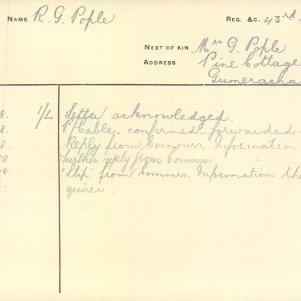 NAME R. G. Pople REG. &C. 43rd
NEXT OF KIN Mrs G. Pople
ADDRESS Pine Cottage
Gumeracha
8. 1/L Letter acknowledged.
8. Cable confirmed forwarded
8. Reply from Commns. Information
8 further reply from Commns.
8. "Slip" from Commns. Information the
quirer.